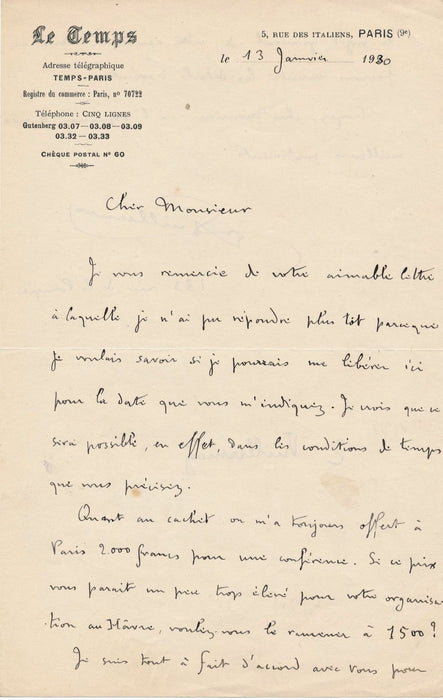 Le Temps
Adresse télégraphique
TEMPS-PARIS
Registre du commerce : Paris, nº 70722
Téléphone : CINQ LIGNES
Gutenberg 03.07 — 03.08 — 03.09
03.32 — 03.33
CHÈQUE POSTAL Nº 60
5, RUE DES ITALIENS, PARIS (9e)
le 13 Janvier 1930
Cher Monsieur
Je vous remercie de votre aimable lettre
à laquelle je n'ai pu répondre plus tôt parceque
je voulais savoir si je pourrais me libérer ici
pour la date que vous m'indiquez. Je crois que ce
sera possible, en effet, dans les conditions de temps
que vous précisez.
Quant au cachet on m'a toujours offert à
Paris 2.000 francs pour une conférence. Si ce prix
vous parait un peu trop élevé pour votre organisa-
tion au Hâvre, voulez-vous le ramener à 1500 ?
Je suis tout à fait d'accord avec vous pour